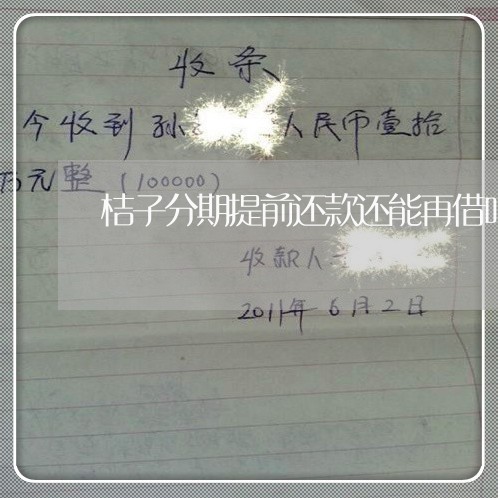 收条
今收到孙 人民币壹拾
万元整(100000)
桔子分期提前还款还能再借
收款人
2011年6月2日